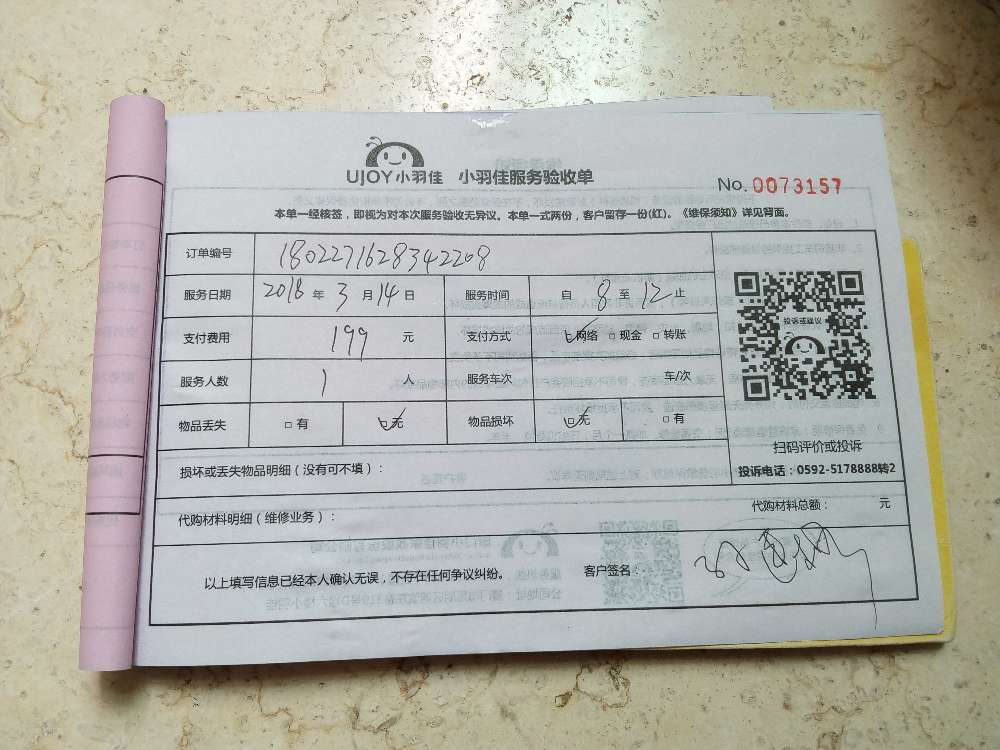 UJOY小羽佳 小羽佳服务验收单
No. 0073157
本单一经核签，即视为对本次服务验收无异议。本单一式两份，客户留存一份(红)。《维保须知》详见背面。
订单编号 1802271628342208
服务日期 2018 年 3 月 14 日 服务时间 自 8 至 12 止
支付费用 199 元 支付方式 ☑网络 □现金 □转账
服务人数 1 人 服务车次 车/次
物品丢失 □有 ☑无 物品损坏 ☑无 □有
投诉或建议
扫码评价或投诉
投诉电话：0592-5178888转2
损坏或丢失物品明细（没有可不填）：
代购材料明细（维修业务）： 代购材料总额： 元
以上填写信息已经本人确认无误，不存在任何争议纠纷。 客户签名：